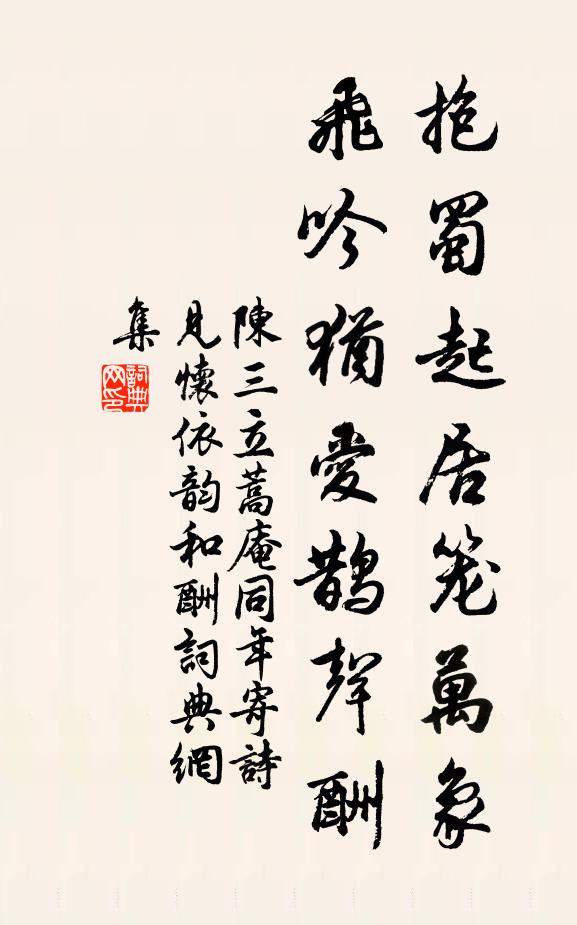 抱蜀起居笼萬象
飛吟猶愛鵲聲酬
陳三立蒿庵同年寄詩
見懷依韵和酬詞典網
集
詞典
网印